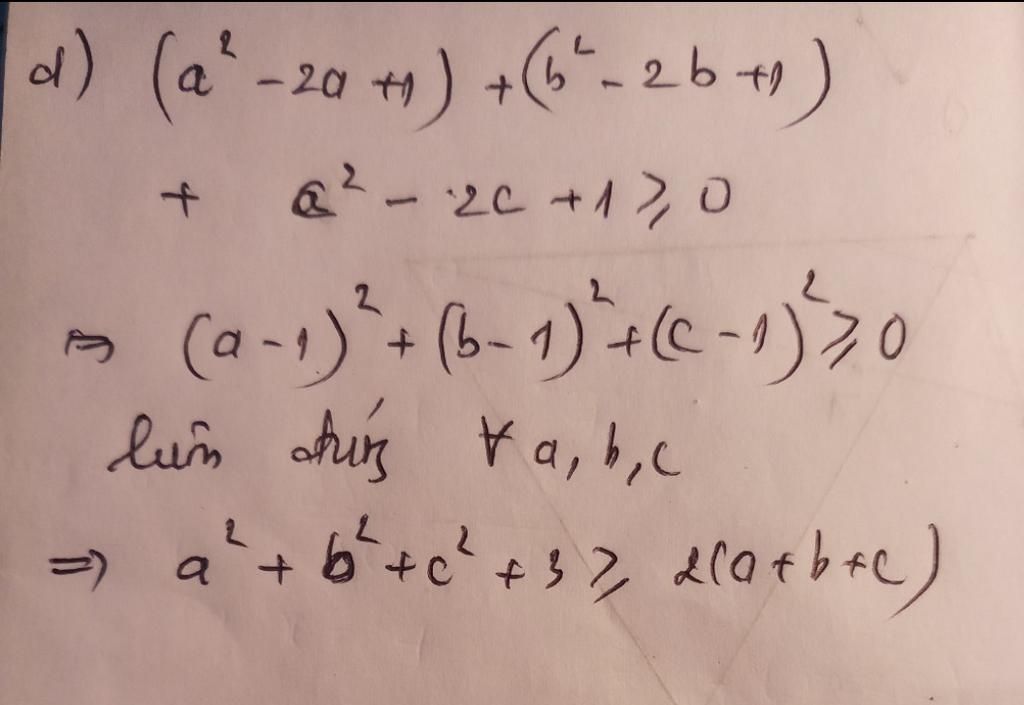 d) (a² - 2a + 1) + (b² - 2b + 1)
+ a² - 2c + 1 ≥ 0
⇒ (a - 1)² + (b - 1)² + (c - 1)² ≥ 0
luôn đúng ∀ a, b, c
⇒ a² + b² + c² + 3 ≥ 2(a + b + c)